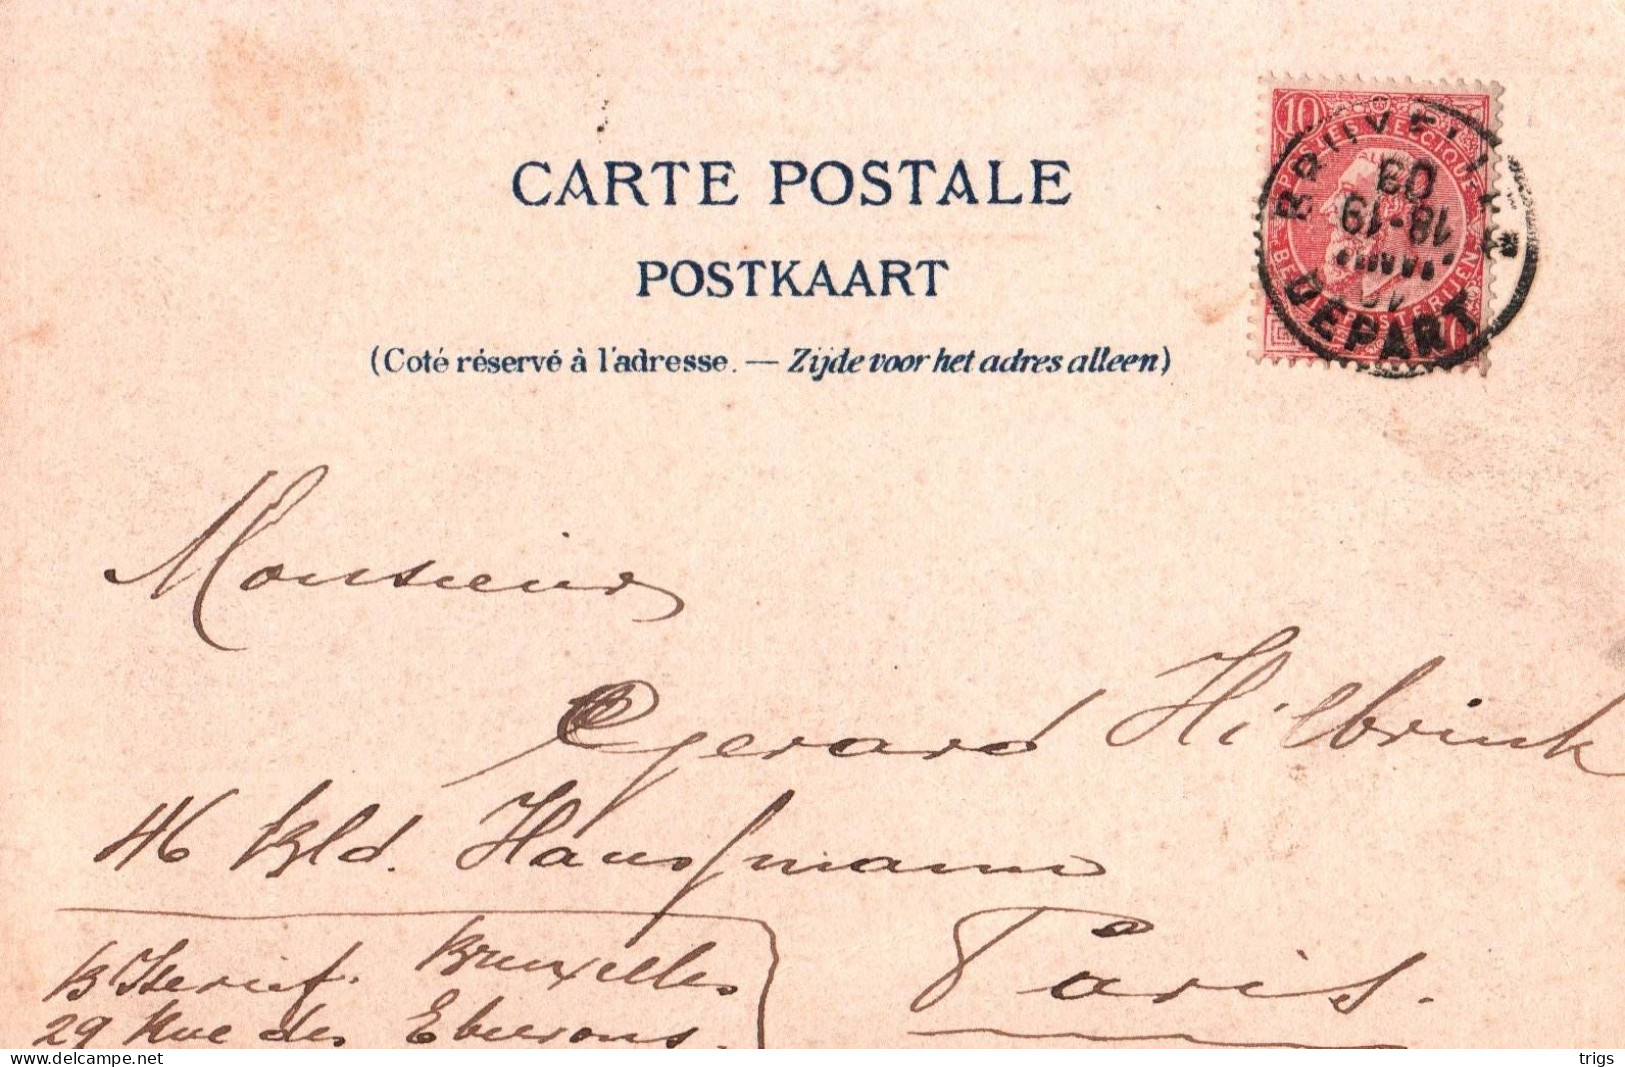 CARTE POSTALE
POSTKAART
(Coté réservé à l'adresse. — Zijde voor het adres alleen)
10
POSTES BELGIQUE
BRUXELLES
03
18-19
DEPART
Monsieur
Gerard Hilbrink
46 Bld. Haussmann
Paris.
Bruxelles
29 Rue des Eburons.
www.delcampe.net
trigs